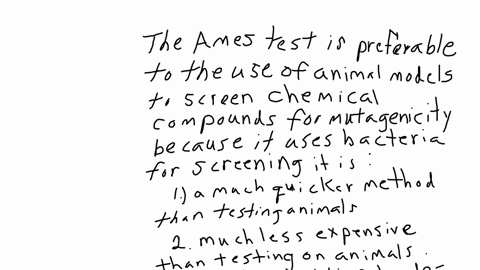 The Ames test is preferable
to the use of animal models
to screen chemical
compounds for mutagenicity
because it uses bacteria
for screening it is :
1.) a much quicker method
than testing animals
2. much less expensive
than testing on animals.